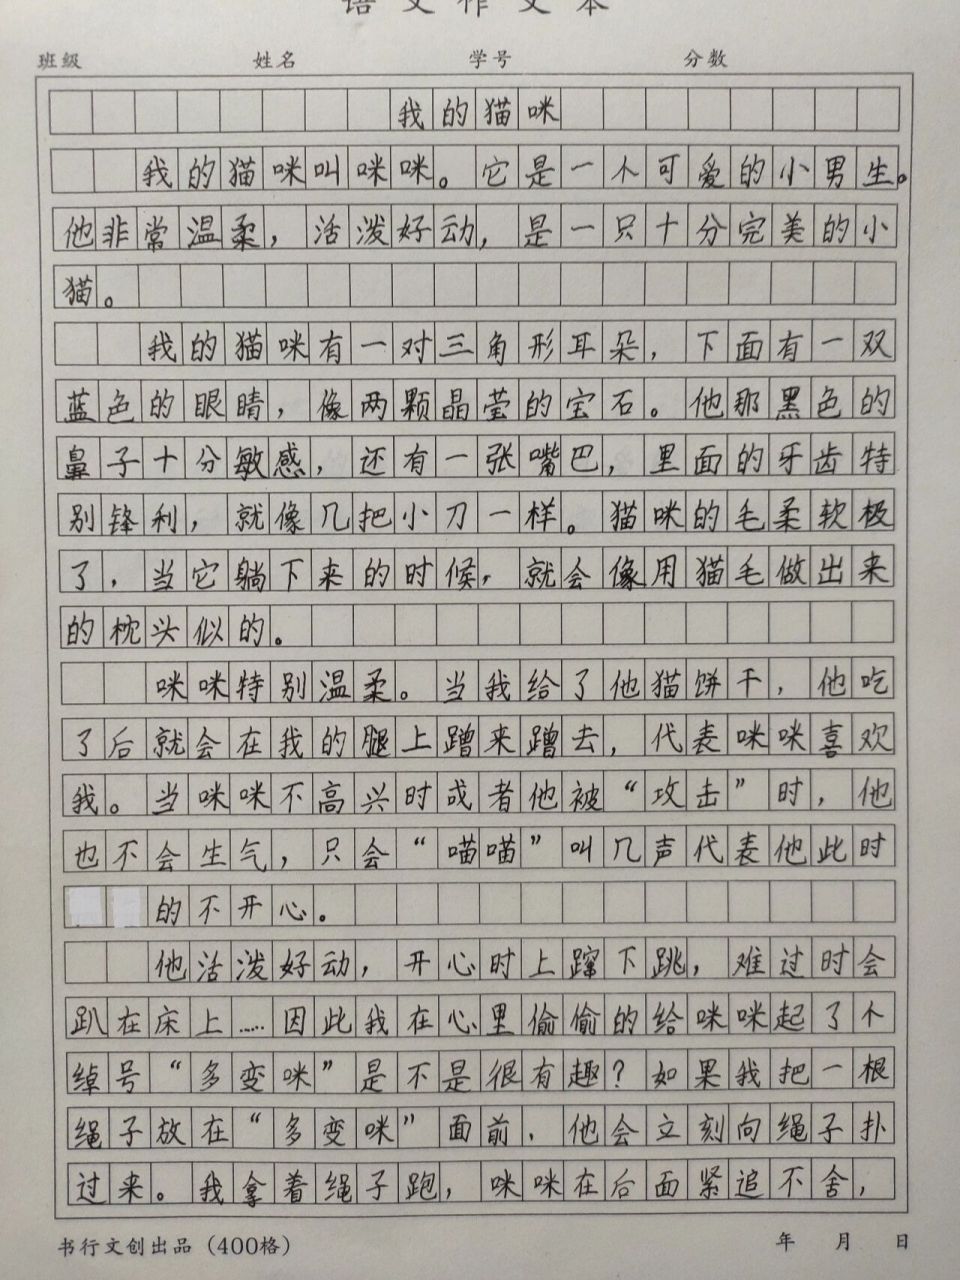 语文作文本
班级 姓名 学号 分数
我的猫咪
我的猫咪叫咪咪。它是一个可爱的小男生。
他非常温柔，活泼好动，是一只十分完美的小
猫。
我的猫咪有一对三角形耳朵，下面有一双
蓝色的眼睛，像两颗晶莹的宝石。他那黑色的
鼻子十分敏感，还有一张嘴巴，里面的牙齿特
别锋利，就像几把小刀一样。猫咪的毛柔软极
了，当它躺下来的时候，就会像用猫毛做出来
的枕头似的。
咪咪特别温柔。当我给了他猫饼干，他吃
了后就会在我的腿上蹭来蹭去，代表咪咪喜欢
我。当咪咪不高兴时或者他被“攻击”时，他
也不会生气，只会“喵喵”叫几声代表他此时
的不开心。
他活泼好动，开心时上蹿下跳，难过时会
趴在床上……因此我在心里偷偷的给咪咪起了个
绰号“多变咪”是不是很有趣？如果我把一根
绳子放在“多变咪”面前，他会立刻向绳子扑
过来。我拿着绳子跑，咪咪在后面紧追不舍，
书行文创出品（400格） 年 月 日